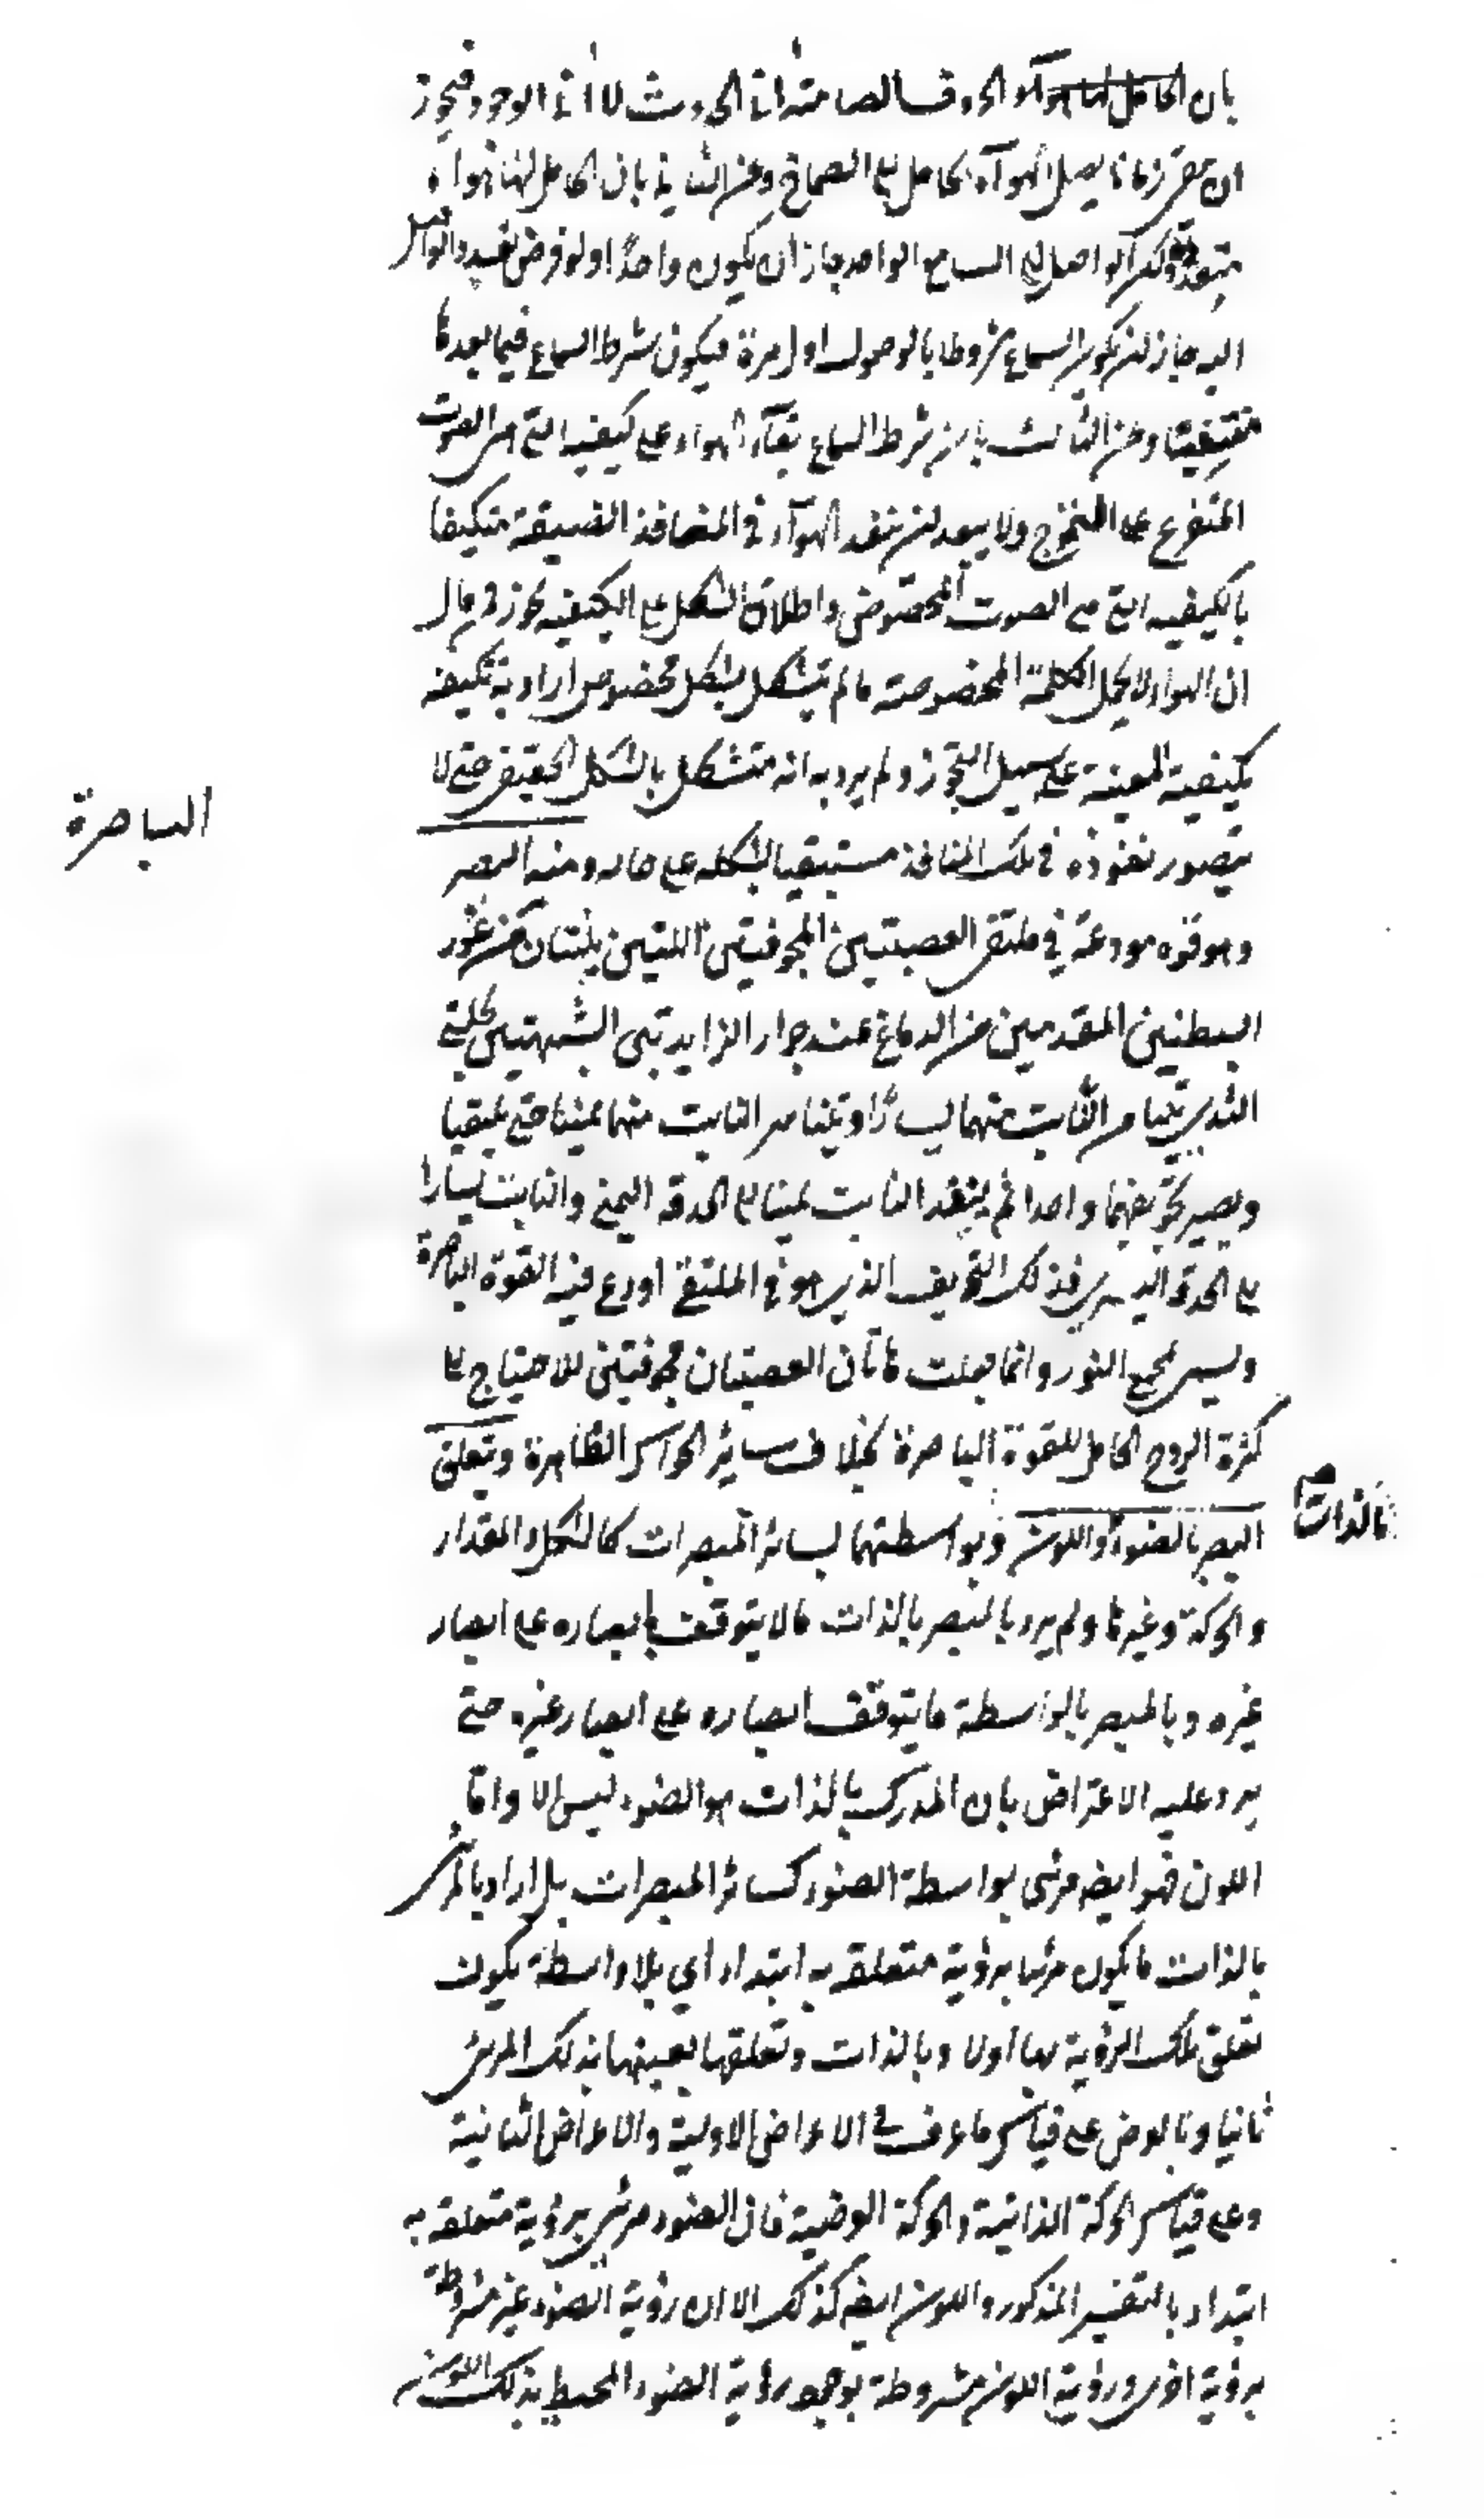 بان الحامل لها هو كو الحروف الصامتة انى الحدوث لا انى الوجود فيجوز
ان تبقى زمانا يصل الهواء الحامل الى الصماخ وعن الثانى بان الحامل لها هواء
متعدد لكن الواصل الى السامع الواحد جاز ان يكون واحدا ولو فرض تعدد الواصل
اليه جاز ان يكون السماع مشروطا بالوصول اول مرة فيكون شرط السماع فيما بعدها
منتفيا وعن الثالث بان شرط السماع بقاء الهواء على كيفية التى هى الصوت
المتفرع على التموج ولا يبعد ان ينفد الهواء فى المنافذ الضيقة متكيفا
بالكيفية التى هى الصوت المخصوص واطلاق الشكل على الكيفية تجوز فمن قال
ان الهواء لا يحمل الكلمة المخصوصة ما لم يتشكل بشكل مخصوص اراد به تكيفه
بكيفية المعينة على سبيل التجوز ولم يرد به انه متشكل بالشكل الحقيقى حتى لا
يتصور نفوذه فى تلك المنافذ مستبقيا لشكله على حاله ومنه البصر
وهو قوة مودعة فى ملتقى العصبتين المجوفتين اللتين ينبتان من غور
البطنين المقدمين من الدماغ عند جوار الزايدتين الشبيهتين بحلمتى
الثدى يتيامن النابت منهما يسارا ويتياسر النابت منهما يمينا حتى يلتقيا
ويصير تجويفهما واحدا ثم ينفذ النابت يمينا الى الحدقة اليمنى والنابت يسارا
الى الحدقة اليسرى فذلك التجويف الذى هو فى الملتقى اودع فيه القوة الباصرة
ويسمى مجمع النور وانما جعلت هاتان العصبتان مجوفتين للاحتياج الى
كثرة الروح الحامل للقوة الباصرة بخلاف ساير الحواس الظاهرة ويتعلق
بالذات
البصر بالضوء واللون وبواسطتهما لسائر المبصرات كالشكل والمقدار
والحركة وغيرها ولم يرد بالمبصر بالذات ما لا يتوقف ابصاره على ابصار
غيره وبالمبصر بالواسطة ما يتوقف ابصاره على ابصار غيره حتى
يرد عليه الاعتراض بان المدرك بالذات هو الضوء ليس الا واما
اللون فهو ايضا مرئى بواسطة الضوء كسائر المبصرات بل اراد بالمرئى
بالذات ما يكون مرئيا برؤية متعلقة به ابتداء اى بلا واسطة يكون
تعلق تلك الرؤية بها اولا وبالذات وتعلقها بعينها بذلك المرئى
ثانيا وبالعرض على قياس ما عرف فى الاعراض الاولية والاعراض الثانية
وعلى قياس الحركة الذاتية والحركة العرضية فان الضوء مرئى برؤية متعلقة به
ابتداء بالتفسير المذكور واللون ايضا كذلك الا ان رؤية الضوء غير مشروطة
برؤية اخرى ورؤية اللون مشروطة بوجود رؤية الضوء المحيط بذلك اللون
الباصرة